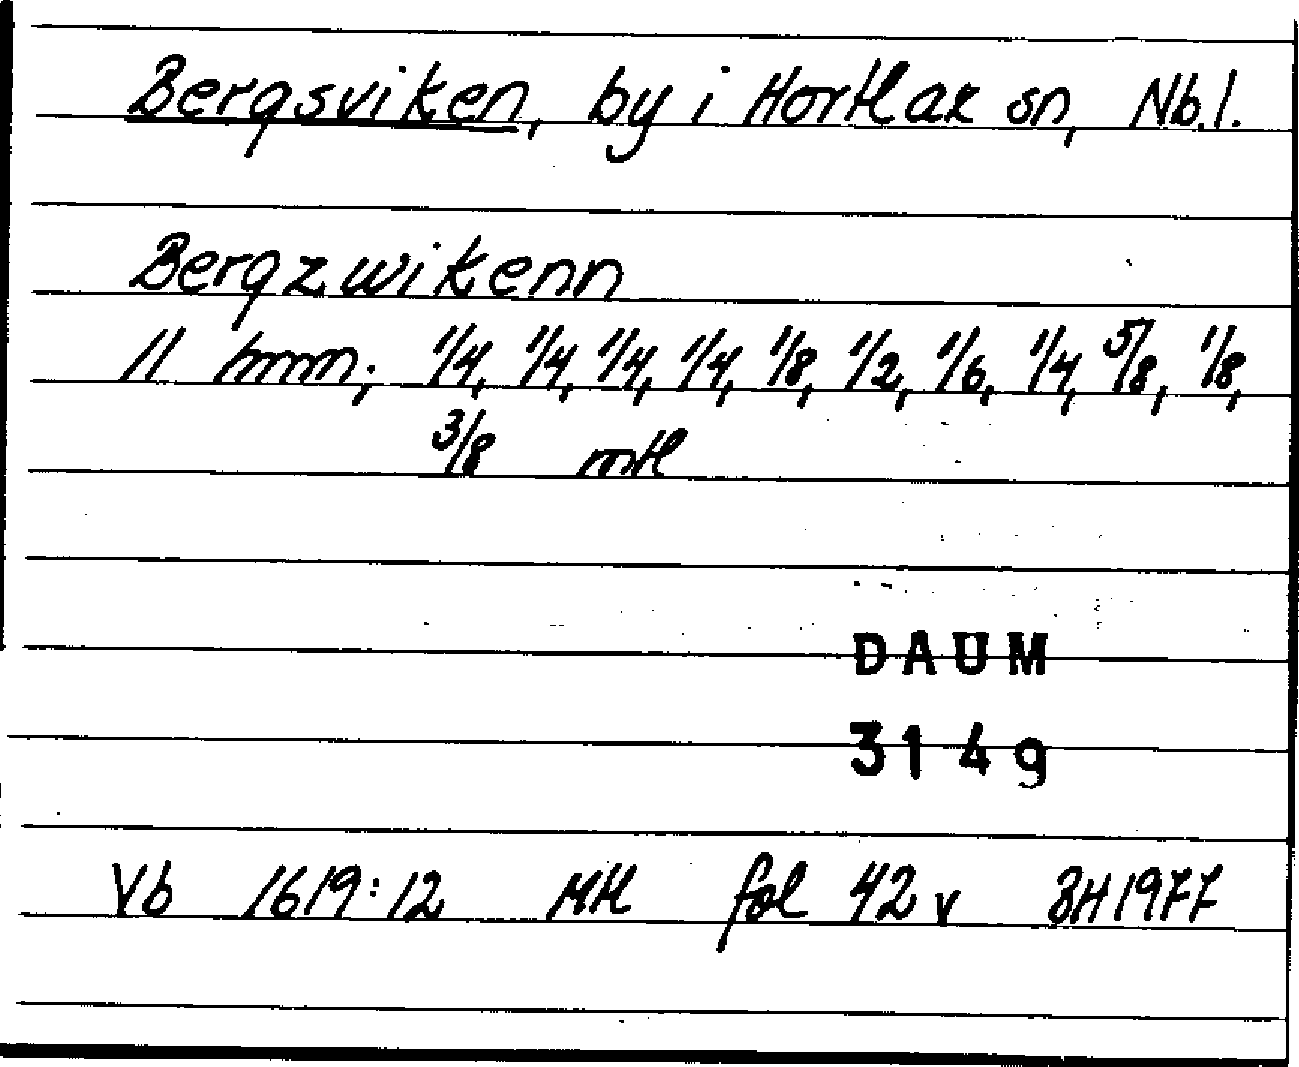 Bergsviken, by i Hortlax sn, Nb.l.
Bergzwikenn
11 hmn; 1/4, 1/4, 1/4, 1/4, 1/8, 1/2, 1/6, 1/4, 5/8, 1/8,
3/8 mtl
DAUM
3149
Vb 1619:12 MH fol 42 v BH 1977